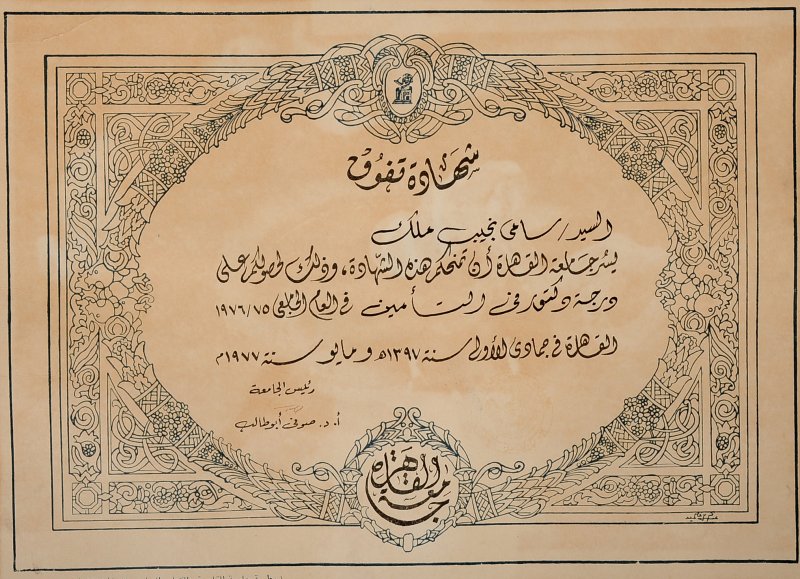 شهادة تفوق
السيد/ سامى نجيب ملك
يسر جامعة القاهرة أن تمنحكم هذه الشهادة، وذلك لحصولكم على
درجة دكتور فى التأمين فى العام الجامعى ١٩٧٦/٧٥
القاهرة فى جمادى الأولى سنة ١٣٩٧ه‍ ومايو سنة ١٩٧٧م
رئيس الجامعة
أ. د. صوفى أبو طالب
جامعة القاهرة